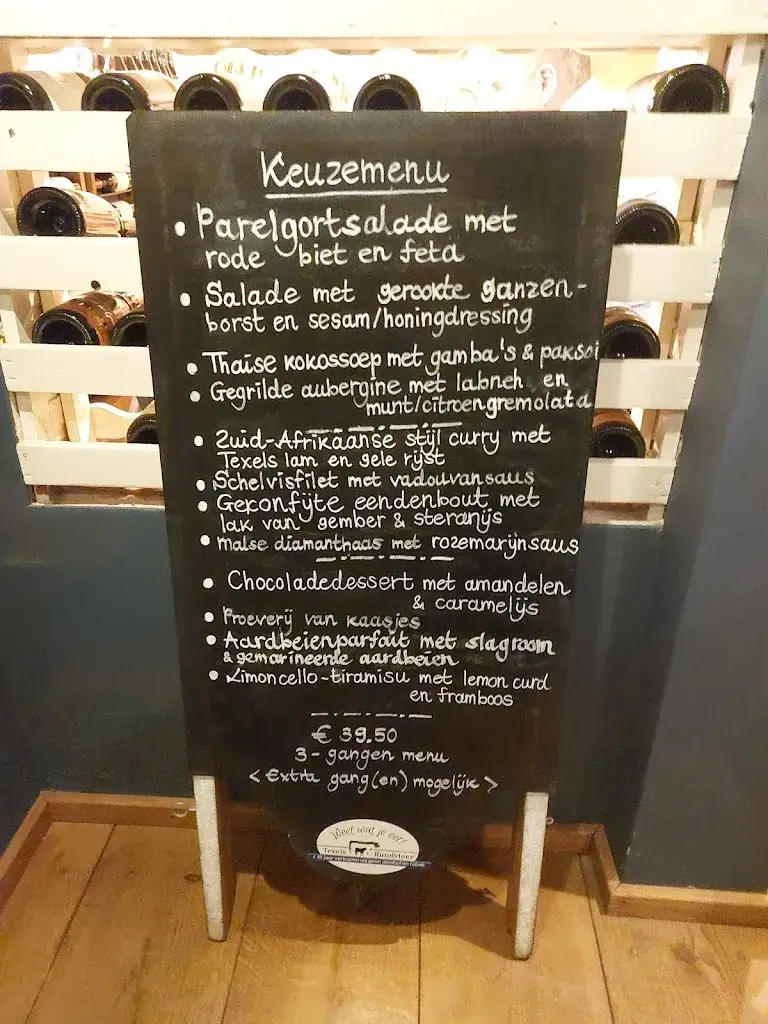 Keuzemenu
• Parelgortsalade met
rode biet en feta
• Salade met gerookte ganzen-
borst en sesam/honingdressing
• Thaise kokossoep met gamba's & paksoi
• Gegrilde aubergine met labneh en
munt/citroengremolata
• Zuid-Afrikaanse stijl curry met
Texels lam en gele rijst
• Schelvisfilet met vadouvansaus
• Gekonfijte eendenbout met
lak van gember & steranijs
• Malse diamanthaas met rozemarijnsaus
• Chocoladedessert met amandelen
& caramelijs
• Proeverij van kaasjes
• Aardbeienparfait met slagroom
& gemarineerde aardbeien
• Limoncello-tiramisu met lemon curd
en framboos
€ 39.50
3-gangen menu
< Extra gang(en) mogelijk >
Weet wat je eet!
Texels Rundvlees